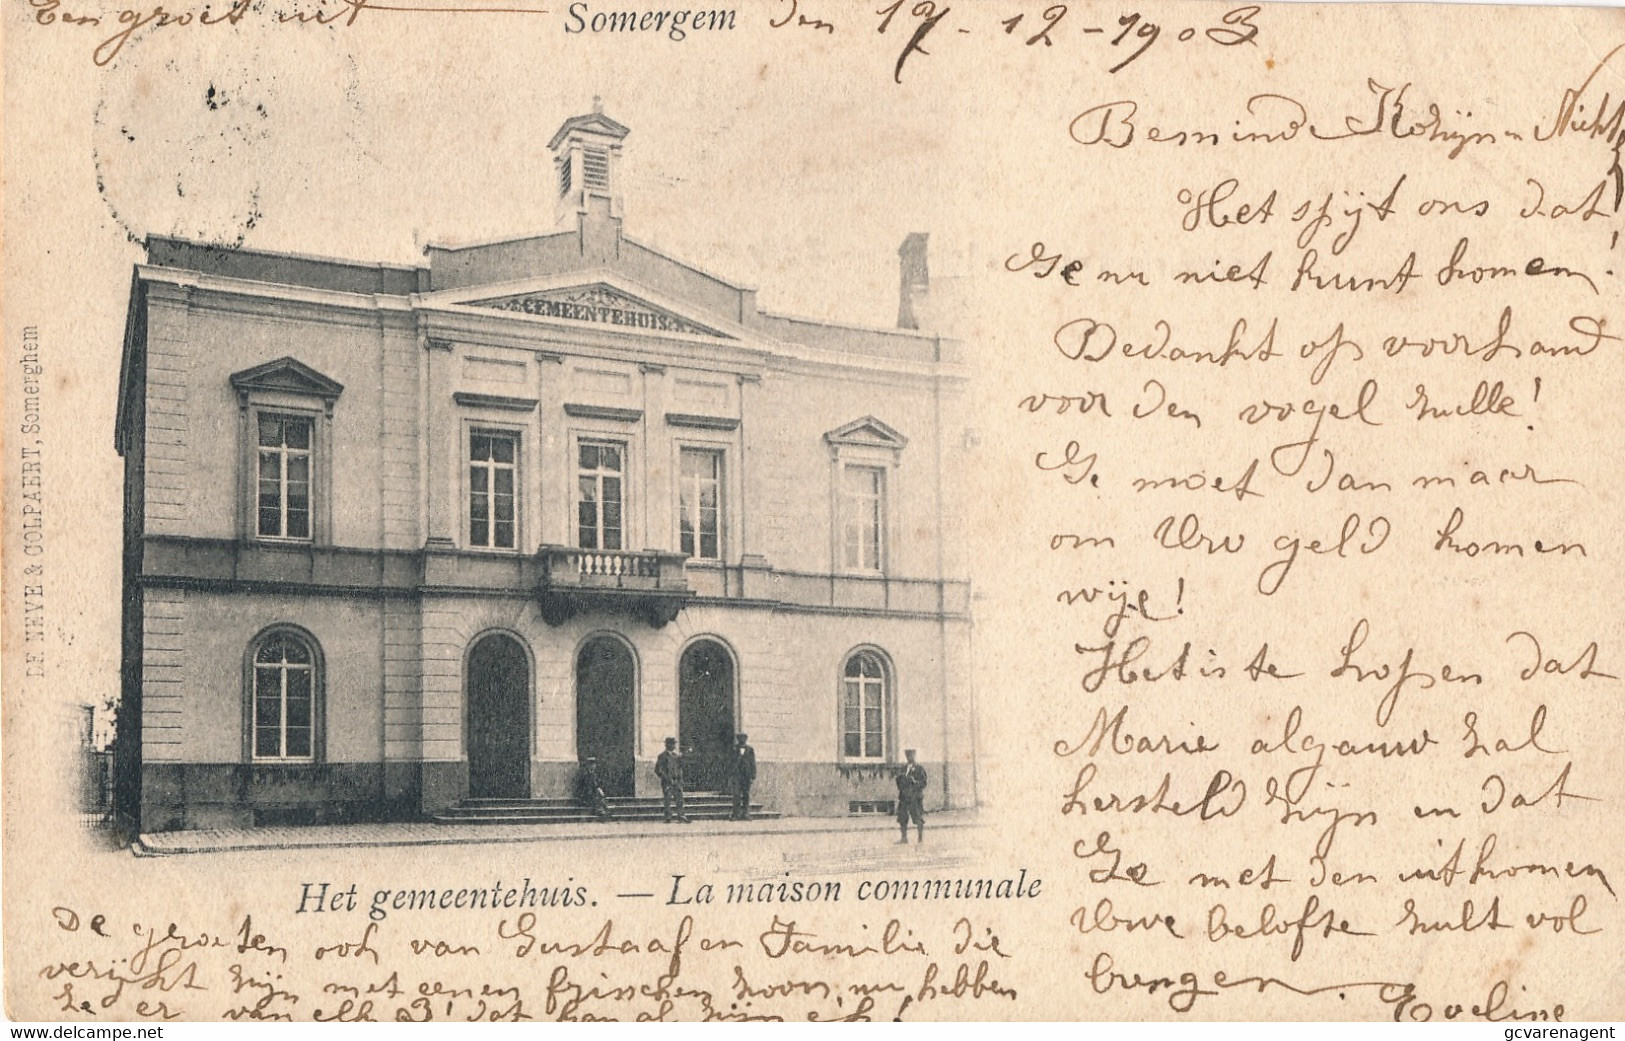 Een groet uit Somergem den 17-12-1903
Beminde Kozijn en Nicht,
Het spijt ons dat
Ge nu niet kunt komen!
Bedankt op voorhand
voor den vogel zulle!
Ge moet dan maar
om Uw geld komen
wije!
Het is te hopen dat
Marie algauw zal
hersteld zijn en dat
Ge met den uitkomen
Uwe belofte zult vol
brengen.
Eveline
GEMEENTEHUIS
DE NEVE & COLPAERT, Somerghem
Het gemeentehuis. — La maison communale
De groeten ook van Gustaaf en Familie die
verijkt zijn met eenen frisschen zoon, nu hebben
ze er van elk 3! dat kan al zijn eh!
delcampe.net
gcvarenagent